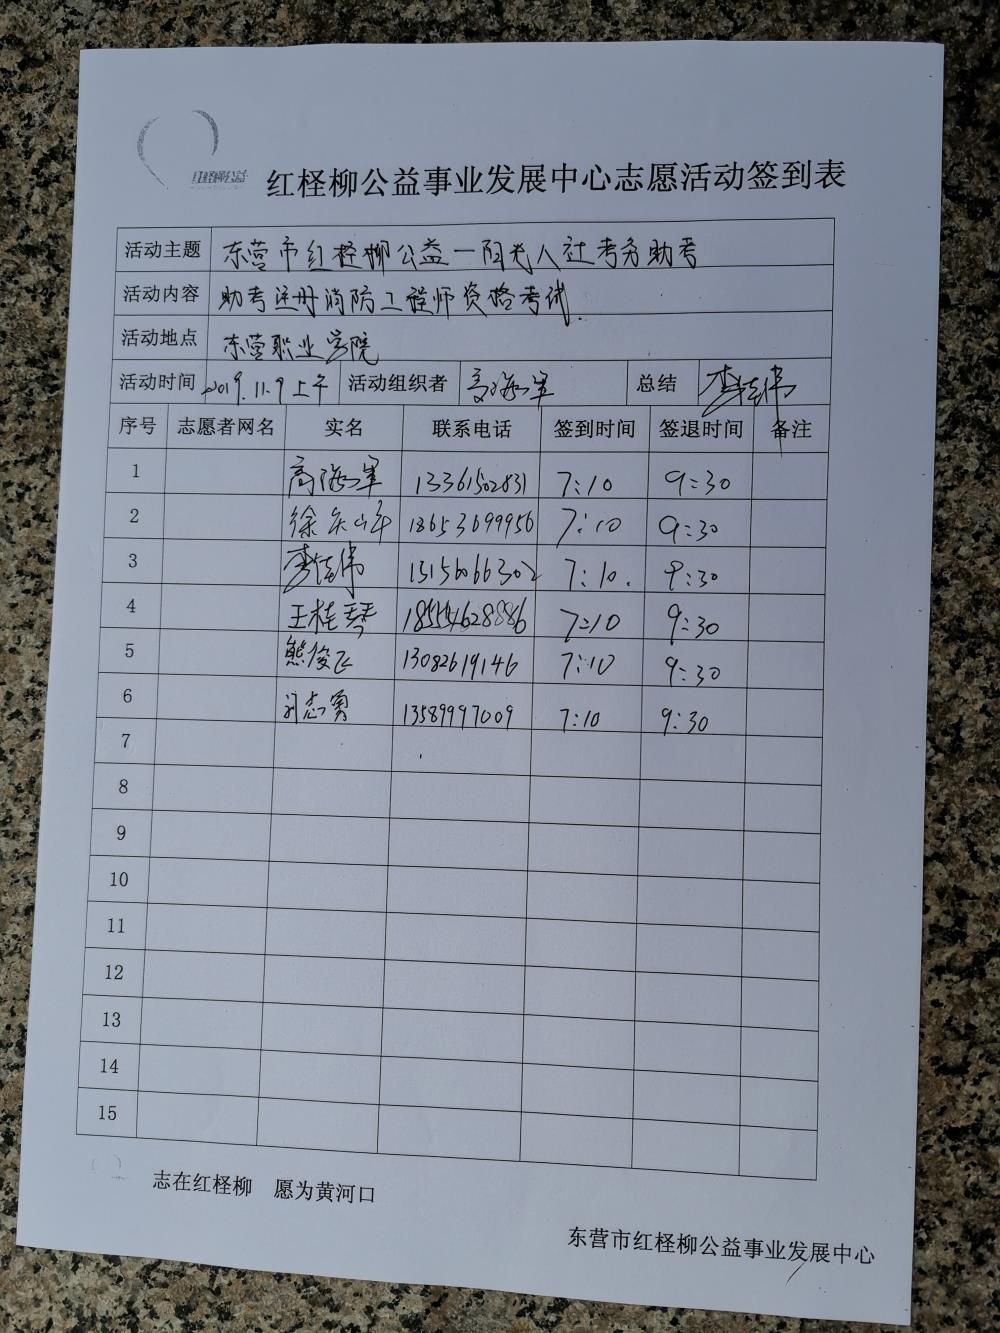 红柽柳公益
红柽柳公益事业发展中心志愿活动签到表
活动主题 东营市红柽柳公益一阳光人社考务助考
活动内容 助考注册消防工程师资格考试.
活动地点 东营职业学院
活动时间 2019.11.9上午 活动组织者 高海军 总结 李佳伟
序号 志愿者网名 实名 联系电话 签到时间 签退时间 备注
1 高海军 13361502831 7:10 9:30
2 徐庆山 18653699956 7:10 9:30
3 李佳伟 15156066302 7:10. 9:30
4 王桂琴 18554628886 7:10 9:30
5 熊俊飞 13082619146 7:10 9:30
6 刘志勇 13589997009 7:10 9:30
7
8
9
10
11
12
13
14
15
志在红柽柳 愿为黄河口
东营市红柽柳公益事业发展中心